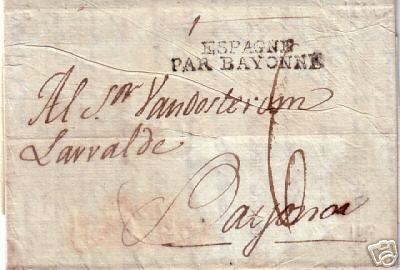 ESPAGNE
PAR BAYONNE
Al Sor Vandosterom
Larralde
6
Bayona
ebY